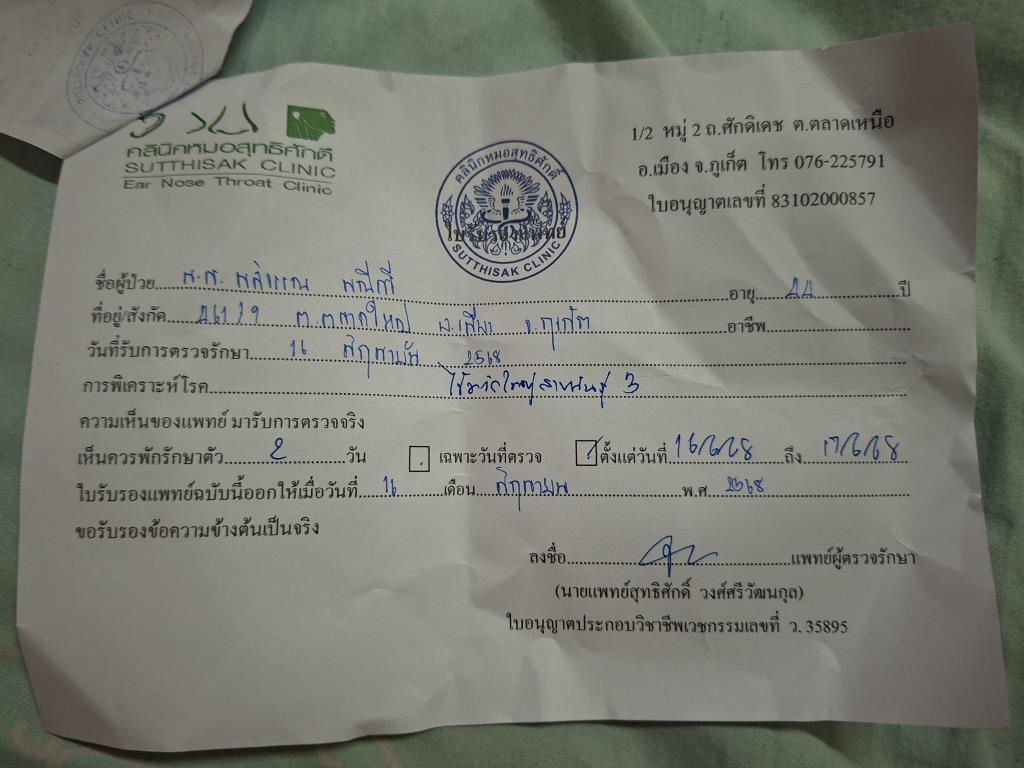 คลินิกหมอสุทธิศักดิ์
SUTTHISAK CLINIC
Ear Nose Throat Clinic
1/2 หมู่ 2 ถ.ศักดิเดช ต.ตลาดเหนือ
อ.เมือง จ.ภูเก็ต โทร 076-225791
ใบอนุญาตเลขที่ 83102000857
คลินิกหมอสุทธิศักดิ์
ใบรับรองแพทย์
SUTTHISAK CLINIC
ชื่อผู้ป่วย น.ส. อายุ 44 ปี
ที่อยู่/สังกัด ต.ตลาดใหญ่ อ.เมือง จ.ภูเก็ต อาชีพ
วันที่รับการตรวจรักษา 16 2568
การพิเคราะห์โรค ไข้หวัดใหญ่สายพันธุ์
ความเห็นของแพทย์ มารับการตรวจจริง
เห็นควรพักรักษาตัว 2 วัน เฉพาะวันที่ตรวจ ตั้งแต่วันที่ 16/6/68 ถึง 17/6/68
ใบรับรองแพทย์ฉบับนี้ออกให้เมื่อวันที่ 16 เดือน พ.ศ 2568
ขอรับรองข้อความข้างต้นเป็นจริง
ลงชื่อ แพทย์ผู้ตรวจรักษา
(นายแพทย์สุทธิศักดิ์ วงศ์ศรีวัฒนกุล)
ใบอนุญาตประกอบวิชาชีพเวชกรรมเลขที่ ว. 35895